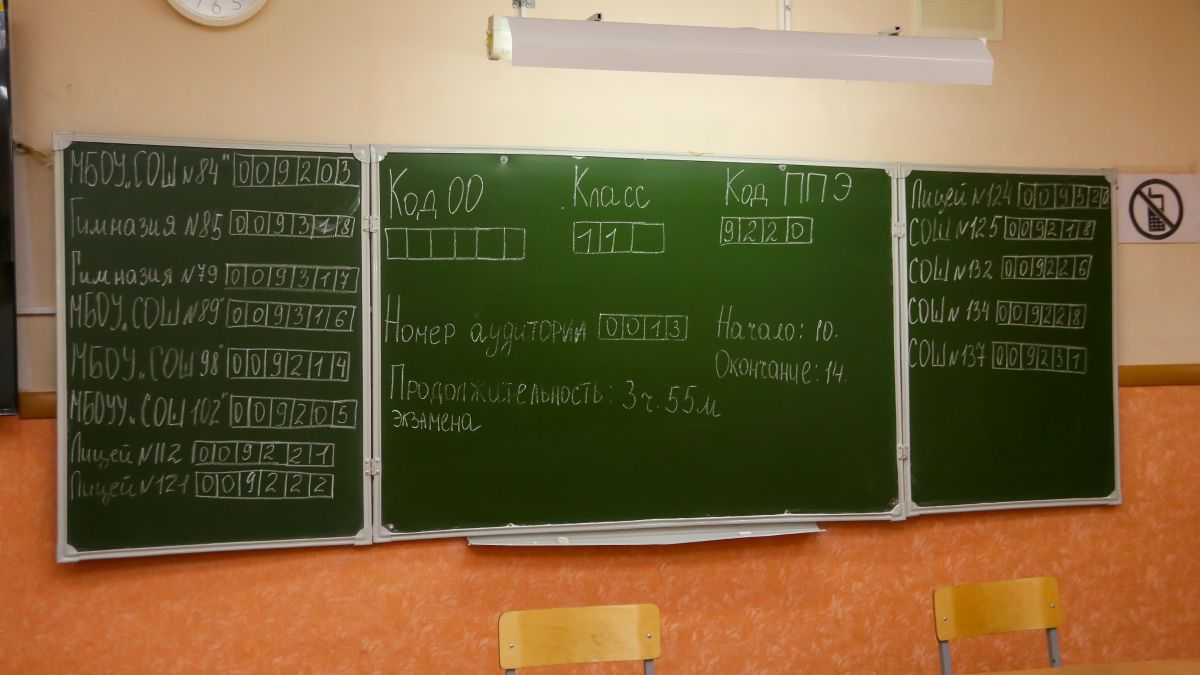 1 6 5
МБОУ „СОШ №84" 009203
Гимназия №85 009318
Гимназия №79 009317
МБОУ „СОШ №89" 009316
МБОУ „СОШ 98" 009214
МБОУУ „СОШ 102" 009205
Лицей №112 009221
Лицей №121 009222
Код ОО
Класс
11
Код ППЭ
9220
Номер аудитории 0013
Продолжительность: 3 ч. 55м
экзамена
Начало: 10.
Окончание: 14.
Лицей №124 009320
СОШ №125 009218
СОШ №132 009226
СОШ №134 009228
СОШ №137 009231